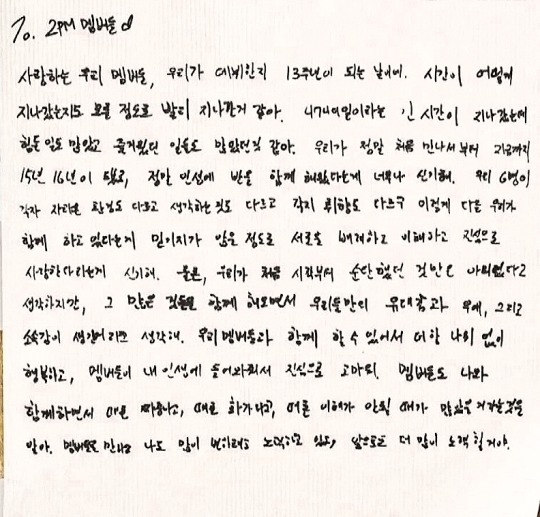 To. 2PM 멤버들♂
사랑하는 우리 멤버들, 우리가 데뷔한지 13주년이 되는 날이네. 시간이 어떻게
지나갔는지도 모를 정도로 빨리 지나간거 같아. 4747일이라는 긴 시간이 지나갔는데
힘든 일도 많았고 즐거웠던 일들도 많았던것 같아. 우리가 정말 처음 만나서부터 지금까지
15년 16년이 됐고, 정말 인생에 반을 함께 해왔다는게 너무나 신기해. 우리 6명이
각자 자라온 환경도 다르고 생각하는것도 다르고 각자 취향도 다르구 이렇게 다른 우리가
함께 하고 있다는게 믿어지가 않은 정도로 서로를 배려하고 이해하고 진심으로
사랑한다라는게 신기해. 물론, 우리가 처음 시작부터 순탄했던 것만은 아니었다고
생각하지만, 그 많은 것들을 함께 해오면서 우리들만의 유대감과 우애, 그리고
소속감이 생겼더라구 생각해. 우리 멤버들과 함께 할 수 있어서 더할 나위 없이
행복하고, 멤버들이 내 인생에 들어와줘서 진심으로 고마워. 멤버들도 나와
함께하면서 때론 짜증나고, 때론 화가나고, 어른 이해가 안될 때가 많았을거라는것을
알아. 멤버들을 만나고 나도 많이 변하려고 노력하고 있고, 앞으로도 더 많이 노력할거야.